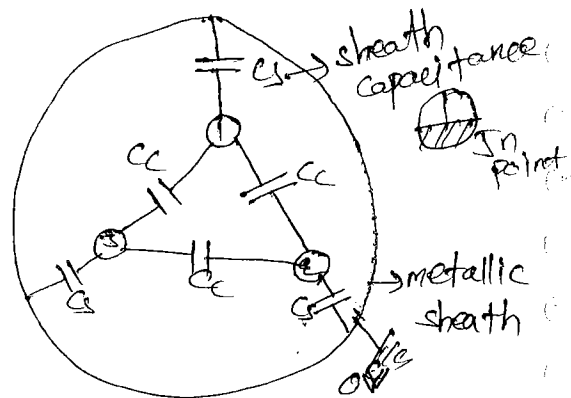 Cs → sheath
capacitance
Jn
point
1
Cc
Cc
3
2
Cs
Cc
Cs
→ metallic
sheath